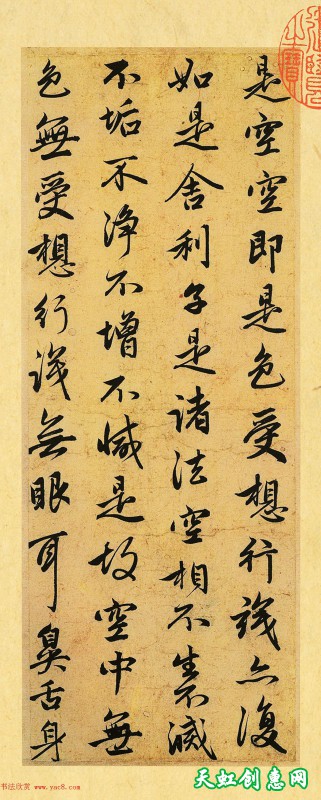 是空空即是色受想行識亦復
如是舍利子是諸法空相不生不滅
不垢不淨不增不減是故空中無
色無受想行識無眼耳鼻舌身
书法欣赏 www.yac8.com
天虹创惠网